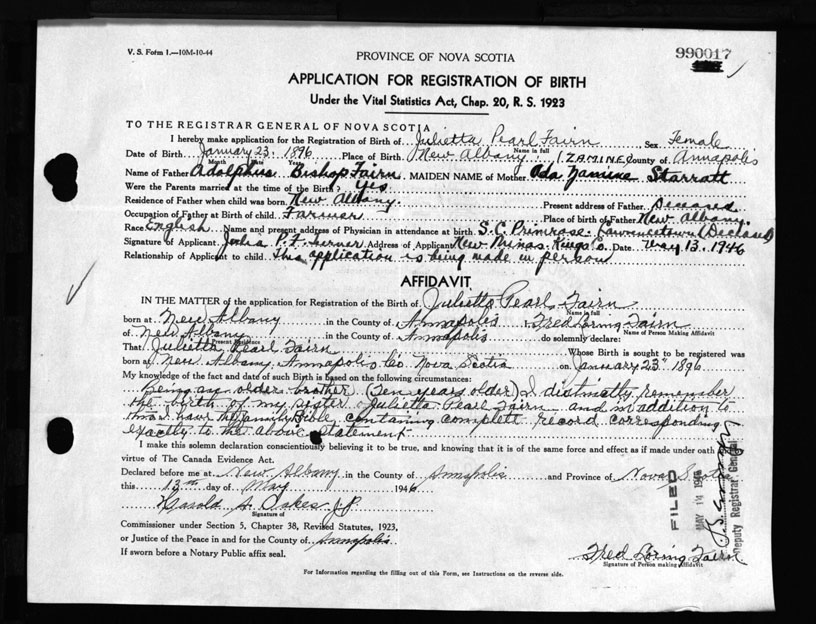 V. S. Form 1.—10M-10-44
990017
PROVINCE OF NOVA SCOTIA
APPLICATION FOR REGISTRATION OF BIRTH
Under the Vital Statistics Act, Chap. 20, R. S. 1923
TO THE REGISTRAR GENERAL OF NOVA SCOTIA
I hereby make application for the Registration of Birth of Julietta Pearl Fairn Sex Female
Name in full
Date of Birth January 23 1896 Place of Birth New Albany (ZAMINE) County of Annapolis
Month Year
Name of Father Adolphus Bishop Fairn MAIDEN NAME of Mother Oda Zamine Starratt
Were the Parents married at the time of the Birth? Yes
Residence of Father when child was born New Albany. Present address of Father Deceased
Occupation of Father at Birth of child Farmer Place of birth of Father New Albany.
Race English Name and present address of Physician in attendance at birth S. C. Primrose Lawrencetown (Deceased)
Signature of Applicant Julia P. F. Address of Applicant New Minas Kings Co. Date May 13. 1946
Relationship of Applicant to child This application is being made in person
AFFIDAVIT
IN THE MATTER of the application for Registration of the Birth of Julietta Pearl Fairn
Name in full
born at New Albany in the County of Annapolis I, Fred Loring Fairn
Name of Person Making Affidavit
of New Albany in the County of Annapolis do solemnly declare:
Present Residence
That Julietta Pearl Fairn Whose Birth is sought to be registered was
born at New Albany, Annapolis Co Nova Scotia on January 23rd 1896
My knowledge of the fact and date of such Birth is based on the following circumstances:
Being an older brother (Ten years older) I distinctly remember
the birth of my sister Julietta Pearl Fairn and in addition to
this I have the family Bible containing complete record corresponding
exactly to the above statement.
I make this solemn declaration conscientiously believing it to be true, and knowing that it is of the same force and effect as if made under oath
virtue of The Canada Evidence Act.
Declared before me at New Albany in the County of Annapolis and Province of Nova Scotia
this 13th day of May 1946
Harold H. Oakes J.P.
Signature of
Commissioner under Section 5, Chapter 38, Revised Statutes, 1923,
or Justice of the Peace in and for the County of Annapolis
If sworn before a Notary Public affix seal.
FILED
MAY 14 1946
Deputy Registrar General
Fred Loring Fairn
Signature of Person making Affidavit
For Information regarding the filling out of this Form, see Instructions on the reverse side.